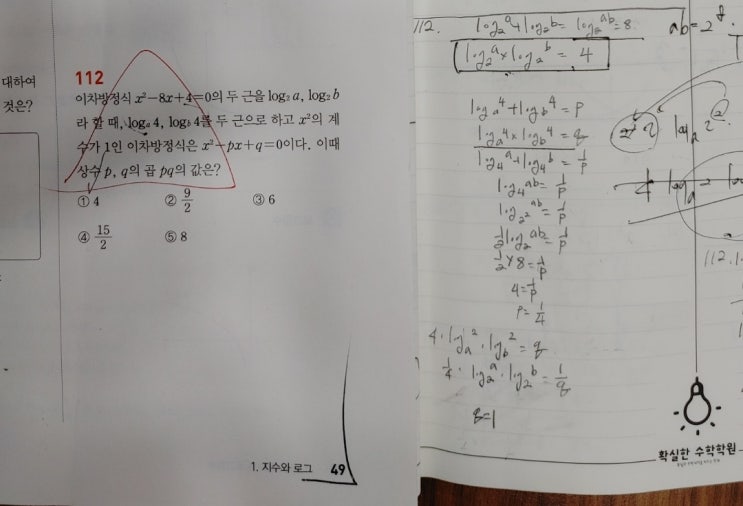 대하여
것은?
112
이차방정식 x²−8x+4=0의 두 근을 log₂ a, log₂ b
라 할 때, logₐ 4, log_b 4를 두 근으로 하고 x²의 계
수가 1인 이차방정식은 x²−px+q=0이다. 이때
상수 p, q의 곱 pq의 값은?
① 4 ② 9/2 ③ 6
④ 15/2 ⑤ 8
1. 지수와 로그 49
112. log₂a+log₂b= log₂ab=8. ab=2⁸.
log₂a×log₂b = 4
logₐ4+log_b4=p
logₐ4×log_b4=q
log₄a+log₄b=1/p
log₄ab=1/p
log₂²ab=1/p
1/2log₂ab=1/p
1/2×8=1/p
4=1/p
p=1/4
4·logₐ2·log_b2=q
1/4·log₂a·log₂b=1/q
q=1
확실한 수학학원